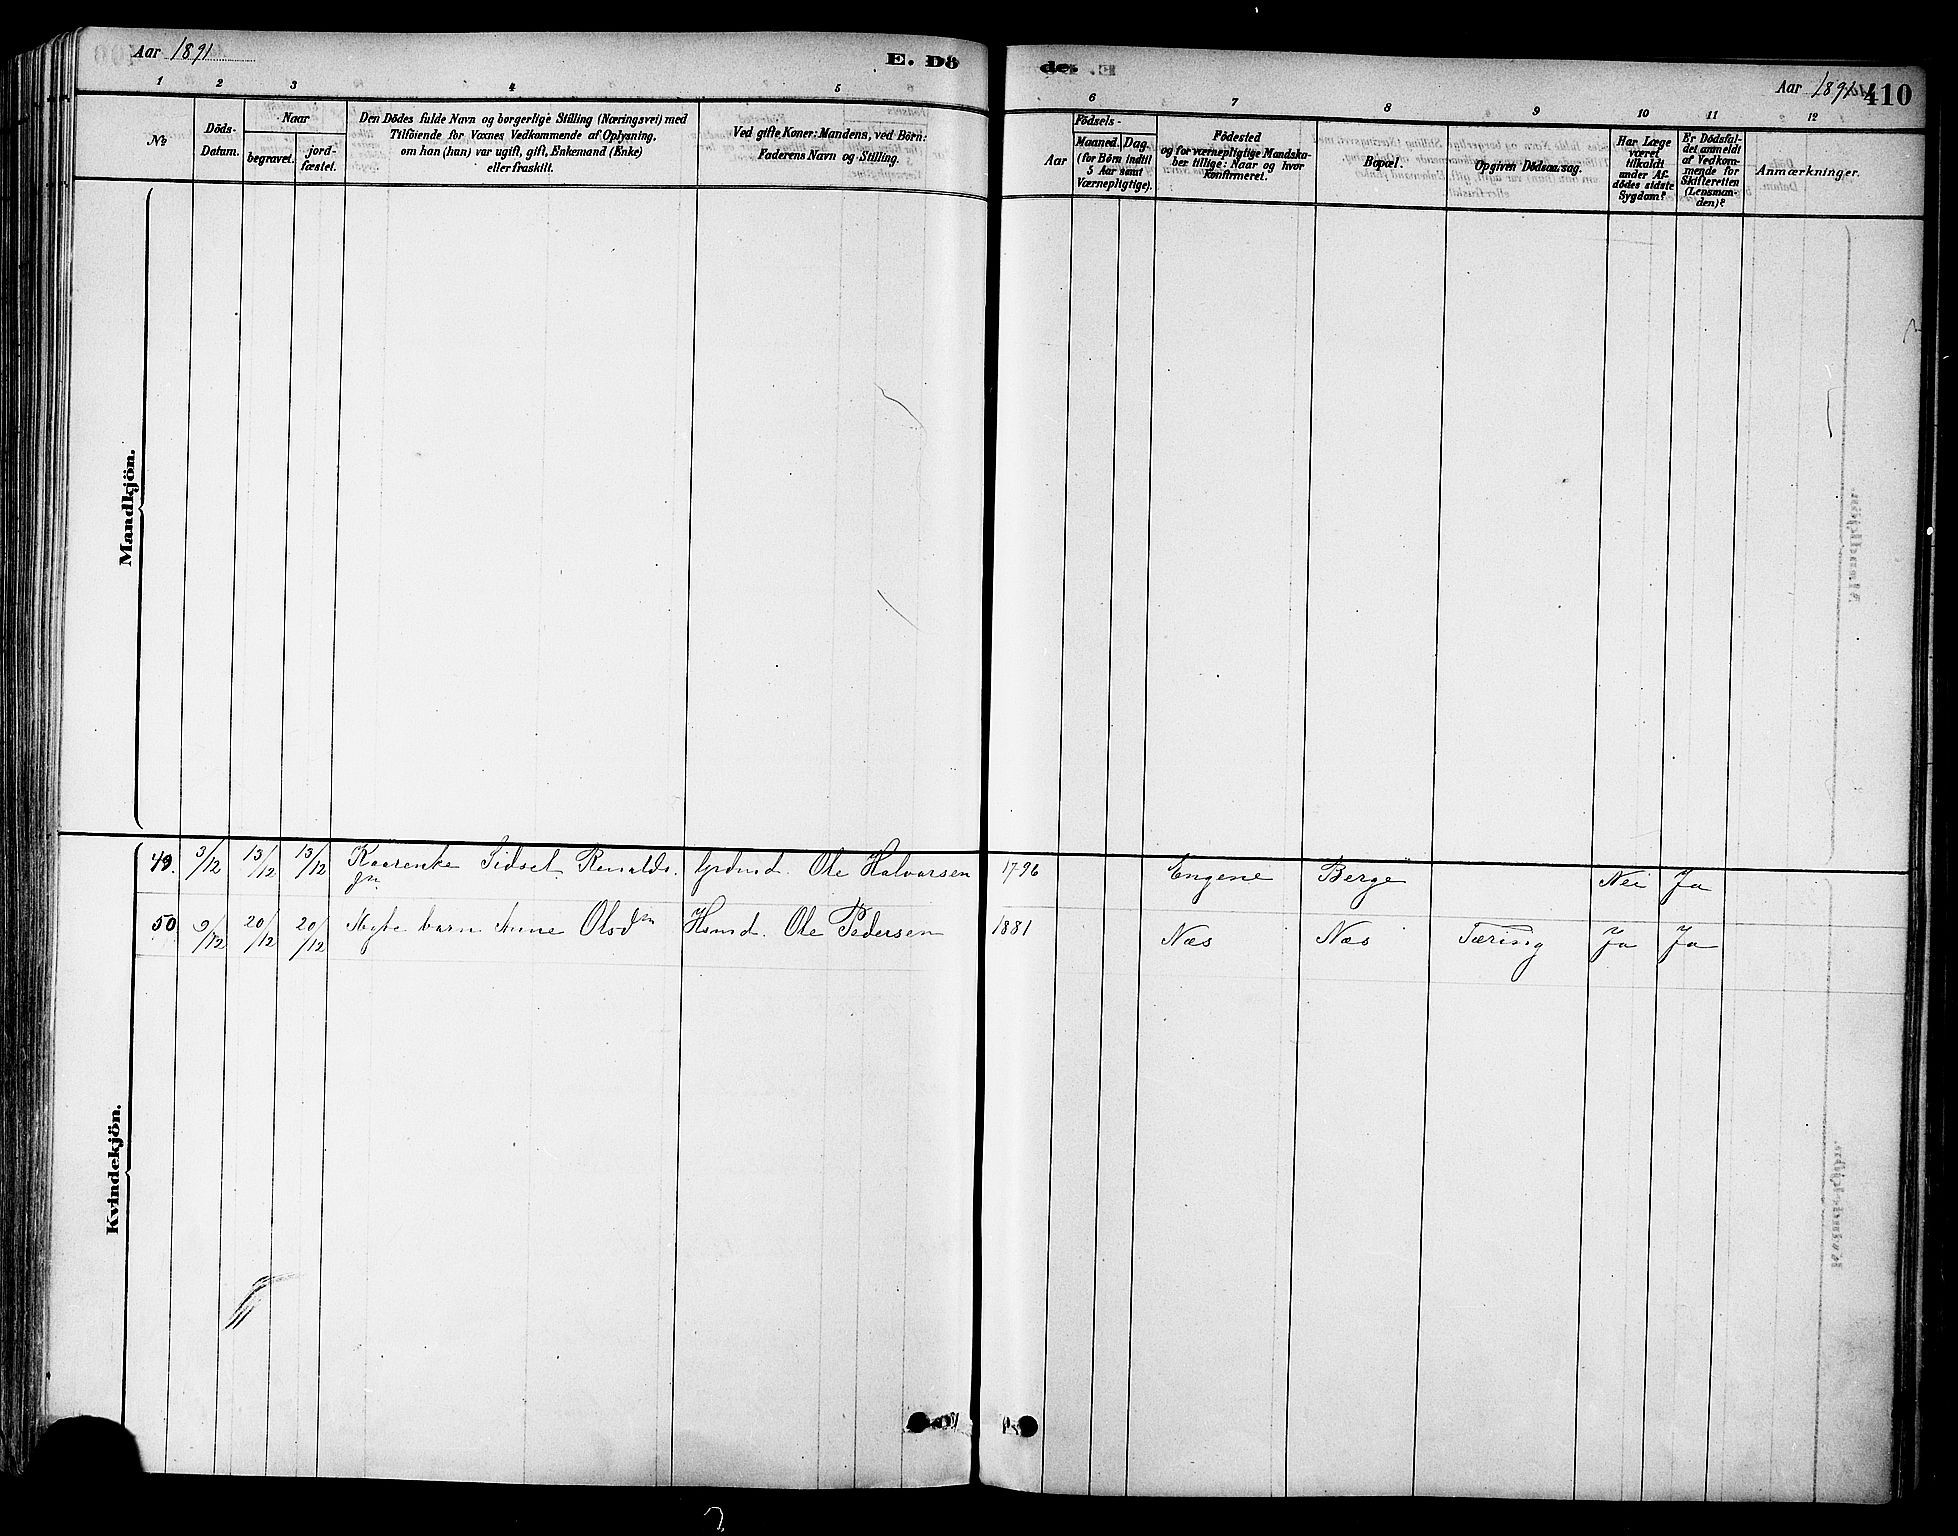 Aar 1891
E. Dö
de.
Aar 1891
410
1 2 3 4 5
6 7 8 9 10 11 12
№
Döds-
Datum.
Naar
begravet.
jord-
fæstet.
Den Dödes fulde Navn og borgerlige Stilling (Næringsvei) med
Tilföiende for Voxnes Vedkommende af Oplysning,
om han (hun) var ugift, gift, Enkemand (Enke)
eller fraskilt.
Ved gifte Koner: Mandens, ved Börn:
Faderens Navn og Stilling.
Födsels-
Aar
Maaned. Dag
(for Börn indtil
5 Aar samt
Værnepligtige).
Födested
og for værnepligtige Mandska-
ber tillige: Naar og hvor
Konfirmeret.
Bopæl.
Opgiven Dödsaarsag.
Har Læge
været
tilkaldt
under Af-
dödes sidste
Sygdom?
Er Dödsfal-
det anmeldt
af Vedkom-
mende for
Skifteretten
(Lensman-
den)?
Anmærkninger.
Mandkjön.
Kvindekjön.
49. 3/12 13/12 13/12 Kaarenke Sidsel Renalds. Ole Halvorsen 1796 Engene Berge Nei Ja
50. 9/12 20/12 20/12 barn Anne Olsdn Hsmd. Ole Pedersen 1881 Næs Næs Tæring Ja Ja